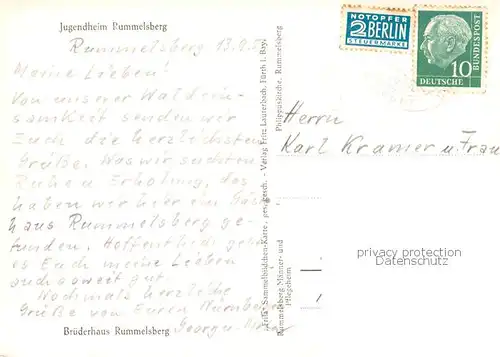 Jugendheim Rummelsberg
Rummelsberg 13.9.
Meine Lieben!
Von unserer Waldein-
samkeit senden wir
Euch die herzlichsten
Grüße. Was wir suchten
Ruhe u Erholung, das
haben wir hier im Gäste
haus Rummelsberg ge-
funden. Hoffentlich geht
es Euch meine Lieben
auch soweit gut
Nochmals herzliche
Grüße von Euren Nürnberger
Georg u.
Brüderhaus Rummelsberg
Sammelbildchen-Karte, ges. gesch. - Verlag Fritz Lauterbach, Fürth i. Bay.
Philippuskirche, Rummelsberg
Rummelsberg Männer- und
Pflegeheim
NOTOPFER
2 BERLIN
STEUERMARKE
10
DEUTSCHE
BUNDESPOST
Herrn
Karl Kramer u. Frau
privacy protection
Datenschutz